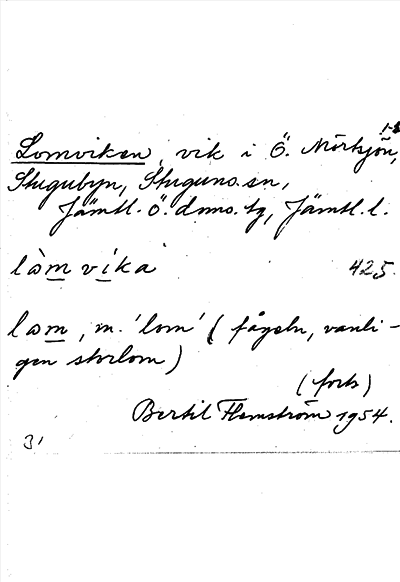 Lomviken, vik i Ö. Mörtsjön,
Stugubyn, Stuguns sn,
Jämtl. ö. doms. tg, Jämtl. l.
lòm víka 425.
lom, m. 'lom' (fågeln, vanli-
gen storlom)
(forts)
Bertil Flemström 1954.
31